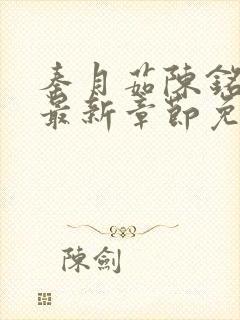 秦月茹陳銘
最新章節免
陳劍